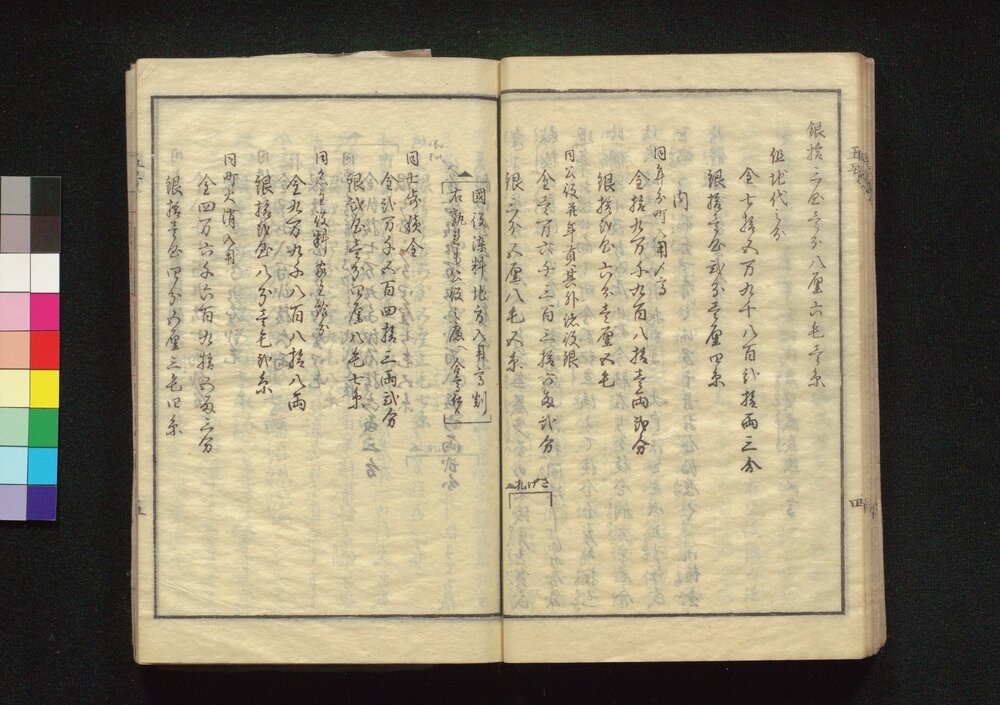 銀拾三匁壱分八厘六毛壱糸
但地代之分
金七拾五万九千八百弐拾両三分
銀拾壱匁弐分壱厘四糸
内
同年分町入用〆高
金拾五万千九百八拾壱両弐分
銀拾弐匁六分壱厘五毛
同公役并年貢其外諸役銀
金壱万六千三百三拾六両弐分
銀三分五厘八毛五糸
さげ札
国役深料地方入用高割
右
同七歩積金
金弐万千五百四拾三両弐分
銀弐匁壱分四厘八毛七糸
金九万九千八百八拾八両
銀拾弐匁八分壱毛弐糸
同町火消入用
金四万六千六百九拾五両三分
銀拾壱匁四分五厘三毛四糸
四
五